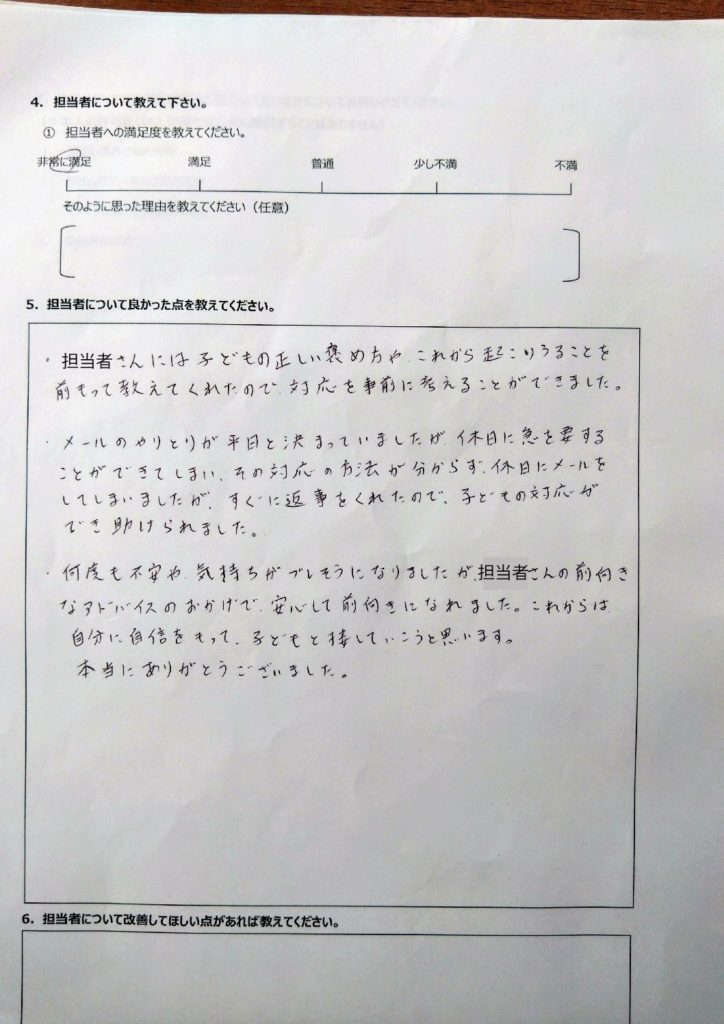 4. 担当者について教えて下さい。
① 担当者への満足度を教えてください。
非常に満足 満足 普通 少し不満 不満
そのように思った理由を教えてください（任意）
5. 担当者について良かった点を教えてください。
・担当者さんには子どもの正しい褒め方や、これから起こりうることを
前もって教えてくれたので、対応を事前に考えることができました。
・メールのやりとりが平日と決まっていましたが、休日に急を要する
ことができてしまい、その対応の方法が分からず、休日にメールを
してしまいましたが、すぐに返事をくれたので、子どもの対応が
でき助けられました。
・何度も不安や、気持ちがブレそうになりましたが、担当者さんの前向き
なアドバイスのおかげで、安心して前向きになれました。これからは
自分に自信をもって、子どもと接していこうと思います。
本当にありがとうございました。
6. 担当者について改善してほしい点があれば教えてください。